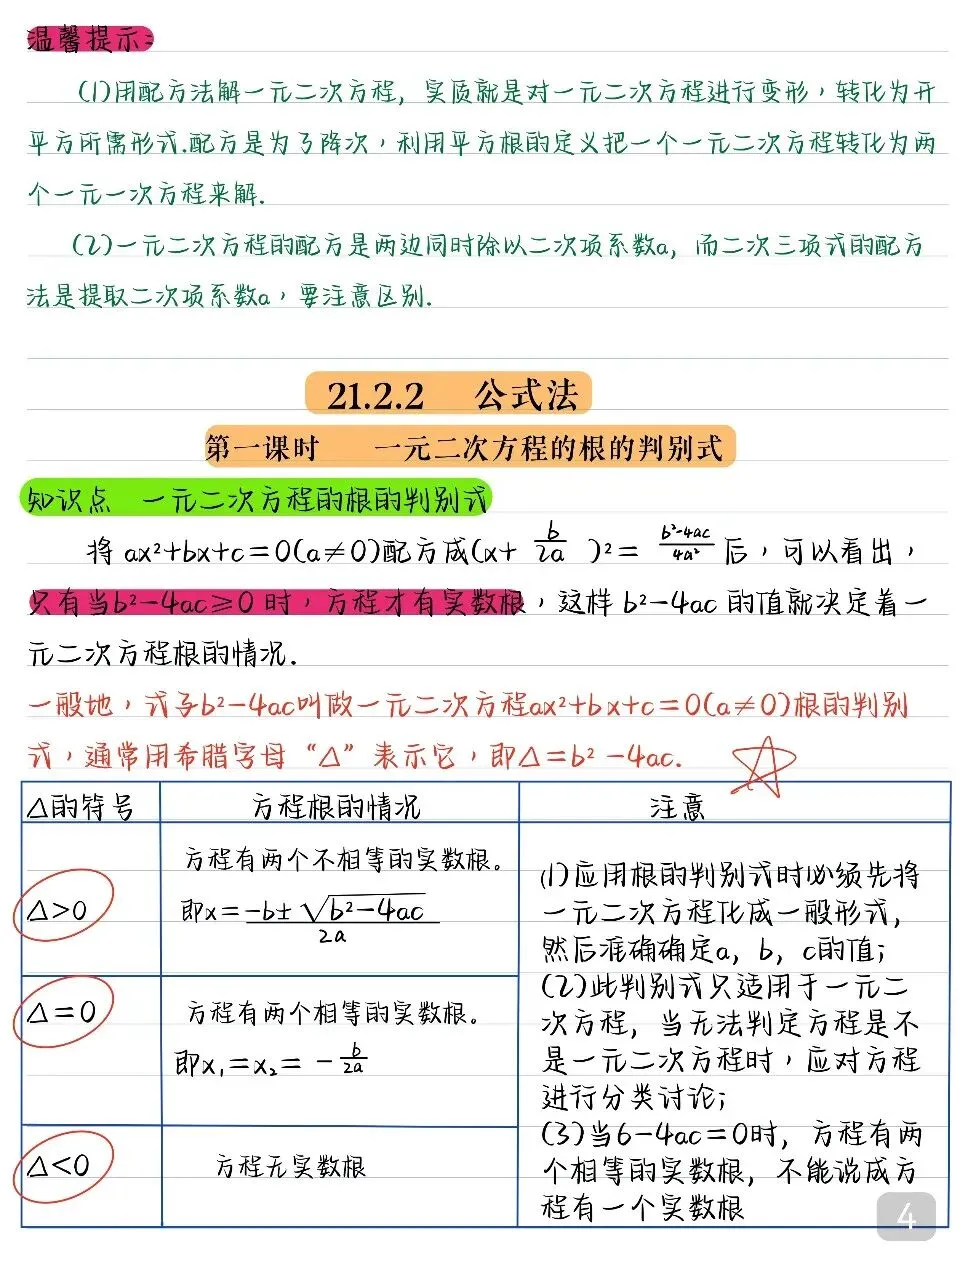 温馨提示:
(1)用配方法解一元二次方程，实质就是对一元二次方程进行变形，转化为开
平方所需形式.配方是为了降次，利用平方根的定义把一个一元二次方程转化为两
个一元一次方程来解.
(2)一元二次方程的配方是两边同时除以二次项系数a，而二次三项式的配方
法是提取二次项系数a，要注意区别.
21.2.2 公式法
第一课时 一元二次方程的根的判别式
知识点 一元二次方程的根的判别式
将 ax²+bx+c=0(a≠0)配方成(x+ b/2a )²= b²-4ac/4a² 后，可以看出，
只有当b²-4ac≥0 时，方程才有实数根，这样 b²-4ac 的值就决定着一
元二次方程根的情况.
一般地，式子b²-4ac叫做一元二次方程ax²+bx+c=0(a≠0)根的判别
式，通常用希腊字母“Δ”表示它，即Δ=b²-4ac.
Δ的符号 方程根的情况 注意
Δ>0
方程有两个不相等的实数根。
即x=-b±√b²-4ac/2a
Δ=0
方程有两个相等的实数根。
即x₁=x₂= -b/2a
Δ<0
方程无实数根
(1)应用根的判别式时必须先将
一元二次方程化成一般形式，
然后准确确定a，b，c的值;
(2)此判别式只适用于一元二
次方程，当无法判定方程是不
是一元二次方程时，应对方程
进行分类讨论;
(3)当6-4ac=0时，方程有两
个相等的实数根，不能说成方
程有一个实数根
4